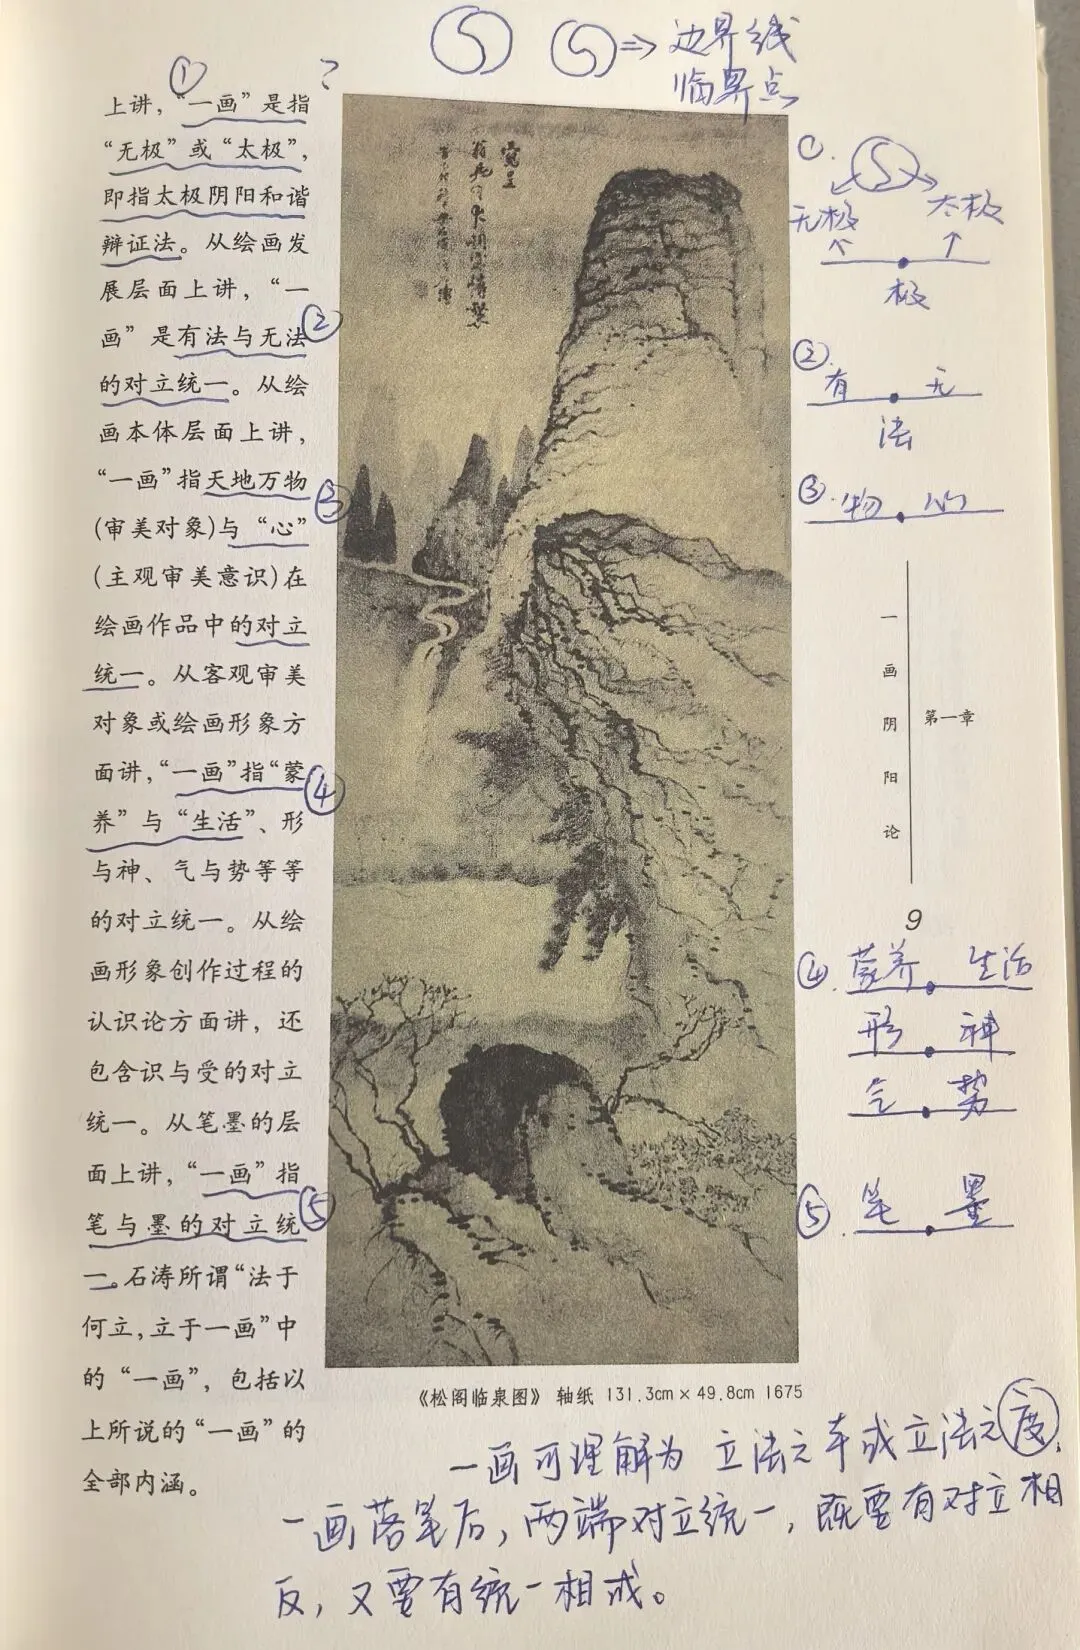 边界线
临界点
①
?
上讲，“一画”是指
“无极”或“太极”，
即指太极阴阳和谐
辩证法。从绘画发
展层面上讲，“一
画”是有法与无法
②
的对立统一。从绘
画本体层面上讲，
“一画”指天地万物
③
(审美对象)与“心”
(主观审美意识)在
绘画作品中的对立
统一。从客观审美
对象或绘画形象方
面讲，“一画”指“蒙
④
养”与“生活”、形
与神、气与势等等
的对立统一。从绘
画形象创作过程的
认识论方面讲，还
包含识与受的对立
统一。从笔墨的层
面上讲，“一画”指
笔与墨的对立统
⑤
一。石涛所谓“法于
何立，立于一画”中
的“一画”，包括以
上所说的“一画”的
全部内涵。
无极 太极
极
②. 有 无
法
③. 物 心
一画阴阳论
第一章
9
④. 蒙养 生活
形 神
气 势
⑤. 笔 墨
《松阁临泉图》 轴纸 131.3cm×49.8cm 1675
一画可理解为 立法之 或立法之度.
一画落笔后，两端对立统一，既要有对立相
反，又要有统一相成。